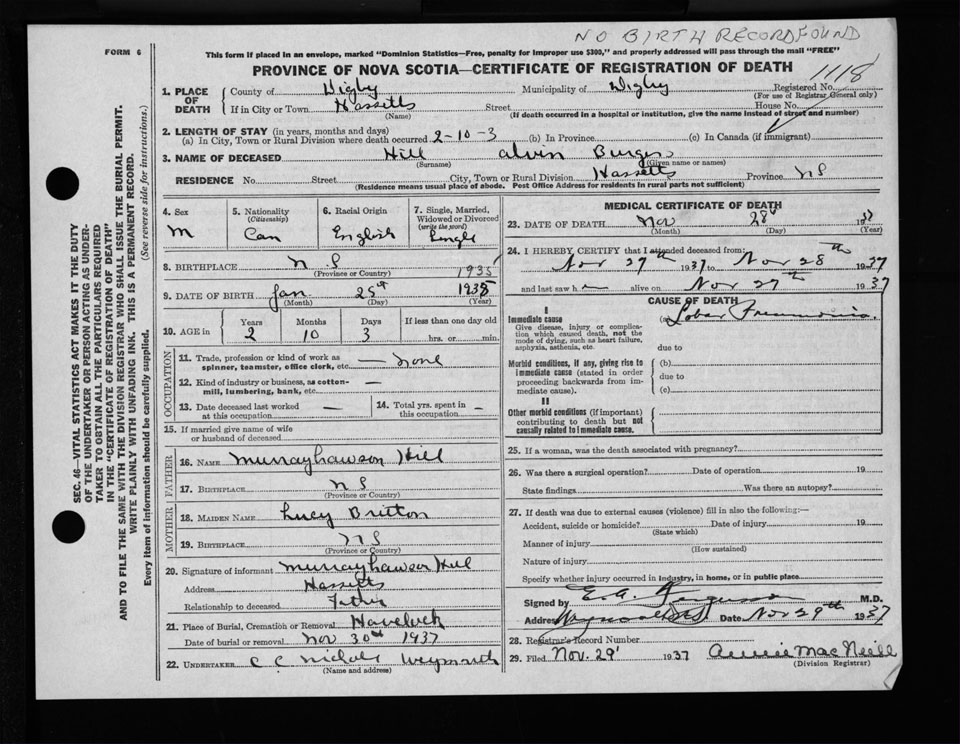 NO BIRTH RECORD FOUND
FORM 6
This form if placed in an envelope, marked "Dominion Statistics—Free, penalty for improper use $300," and properly addressed will pass through the mail "FREE"
PROVINCE OF NOVA SCOTIA—CERTIFICATE OF REGISTRATION OF DEATH
1118
1. PLACE OF DEATH
County of Digby Municipality of Digby Registered No.
(For use of Registrar General only)
If in City or Town Hassetts Street House No.
(Name) (If death occurred in a hospital or institution, give the name instead of street and number)
2. LENGTH OF STAY (in years, months and days)
(a) In City, Town or Rural Division where death occurred 2-10-3 (b) In Province (c) In Canada (if immigrant)
3. NAME OF DECEASED Hill Alvin Burges
(Surname) (Given name or names)
RESIDENCE No. Street City, Town or Rural Division Hassetts Province NS
(Residence means usual place of abode. Post Office Address for residents in rural parts not sufficient)
4. Sex M
5. Nationality (Citizenship) Can
6. Racial Origin English
7. Single, Married, Widowed or Divorced (write the word) Single
8. BIRTHPLACE NS
(Province or Country) 1935
9. DATE OF BIRTH Jan 25st 1935
(Month) (Day) (Year)
10. AGE in Years Months Days If less than one day old
2 10 3 hrs. or min.
OCCUPATION
11. Trade, profession or kind of work as spinner, teamster, office clerk, etc. none
12. Kind of industry or business, as cotton-mill, lumbering, bank, etc. —
13. Date deceased last worked at this occupation —
14. Total yrs. spent in this occupation -
15. If married give name of wife or husband of deceased
FATHER
16. NAME Murray Hawson Hill
17. BIRTHPLACE NS
(Province or Country)
MOTHER
18. MAIDEN NAME Lucy Britton
19. BIRTHPLACE NS
(Province or Country)
20. Signature of informant Murray Hawson Hill
Address Hassetts
Relationship to deceased Father
21. Place of Burial, Cremation or Removal Havelock
Date of burial or removal Nov 30th 1937
22. UNDERTAKER C C Nichols Weymouth
(Name and address)
MEDICAL CERTIFICATE OF DEATH
23. DATE OF DEATH Nov 28 1937
(Month) (Day) (Year)
24. I HEREBY CERTIFY that I attended deceased from:
Nov 27th 1937 to Nov 28th 1937
and last saw h alive on Nov 27th 1937
CAUSE OF DEATH
I
Immediate cause (a) Lobar Pneumonia.
Give disease, injury or complication which caused death, not the mode of dying, such as heart failure, asphyxia, asthenia, etc.
due to
Morbid conditions, if any, giving rise to immediate cause (stated in order proceeding backwards from immediate cause).
(b)
due to
(c)
II
Other morbid conditions (if important) contributing to death but not causally related to immediate cause.
25. If a woman, was the death associated with pregnancy?
26. Was there a surgical operation? Date of operation 19
State findings Was there an autopsy?
27. If death was due to external causes (violence) fill in also the following:—
Accident, suicide or homicide? Date of injury 19
(State which)
Manner of injury
(How sustained)
Nature of injury
Specify whether injury occurred in industry, in home, or in public place
Signed by E. A. Ferguson M.D.
Address Date Nov 29th 1937
28. Registrar's Record Number
29. Filed Nov. 29 1937 Annie MacNeill
(Division Registrar)
SEC. 46—VITAL STATISTICS ACT MAKES IT THE DUTY
OF THE UNDERTAKER OR PERSON ACTING AS UNDER-
TAKER TO OBTAIN ALL THE PARTICULARS REQUIRED
IN THE "CERTIFICATE OF REGISTRATION OF DEATH"
AND TO FILE THE SAME WITH THE DIVISION REGISTRAR WHO SHALL ISSUE THE BURIAL PERMIT.
WRITE PLAINLY WITH UNFADING INK. THIS IS A PERMANENT RECORD.
Every item of information should be carefully supplied. (See reverse side for instructions.)